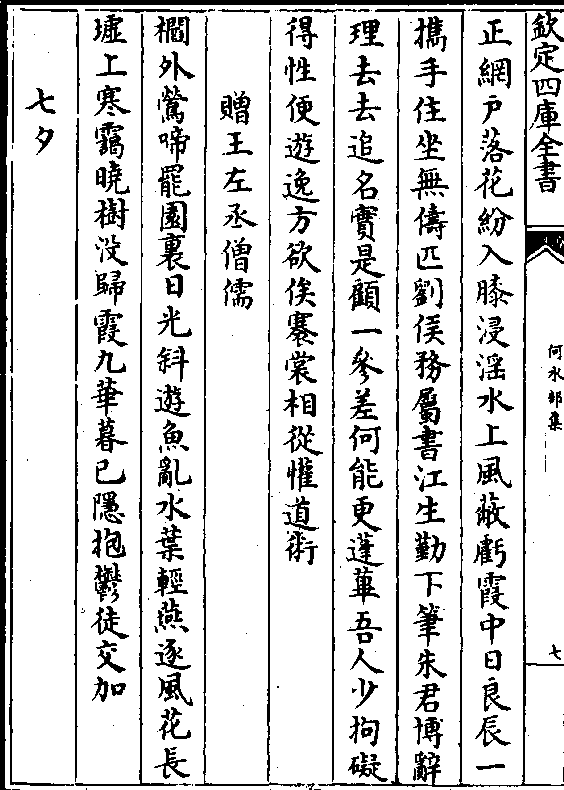 欽定四庫全書
何水部集
七
正網戶落花紛入膝浸淫水上風蔽虧霞中日良辰一
攜手住坐無儔匹劉侯務屬書江生勤下筆朱君博辭
理去去追名實是顧一參差何能更蓬蓽吾人少拘礙
得性便遊逸方欲俟褰裳相從懽道術
贈王左丞僧儒
櫩外鶯啼罷園裏日光斜遊魚亂水葉輕燕逐風花長
墟上寒靄曉樹沒歸霞九華暮已隱抱鬱徒交加
七夕